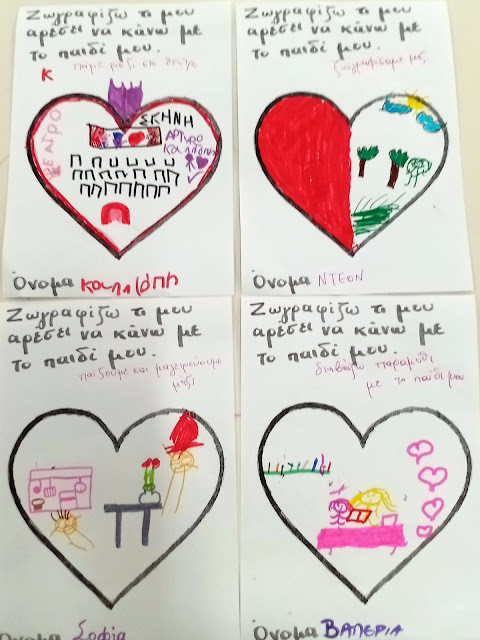 Ζωγραφίζω τι μου
αρέσει να κάνω με
το παιδί μου.
πάμε μαζί στο θέατρο
Κ
ΣΚΗΝΗ
ΘΕΑΤΡΟ
ΑΡΤΥΡΟ
ΚΑΛΛΙΟΠΗ
Όνομα καλλιόπη
Ζωγραφίζω τι μου
αρέσει να κάνω με
το παιδί μου.
ζωγραφίζουμε μαζί
Όνομα ΝΤΕΟΝ
Ζωγραφίζω τι μου
αρέσει να κάνω με
το παιδί μου.
παίζουμε και μαγειρεύουμε
μαζί
Όνομα Σοφία
Ζωγραφίζω τι μου
αρέσει να κάνω με
το παιδί μου.
διαβάζω παραμύθι
με το παιδί μου
Όνομα ΒΑΛΕΡΙΑ